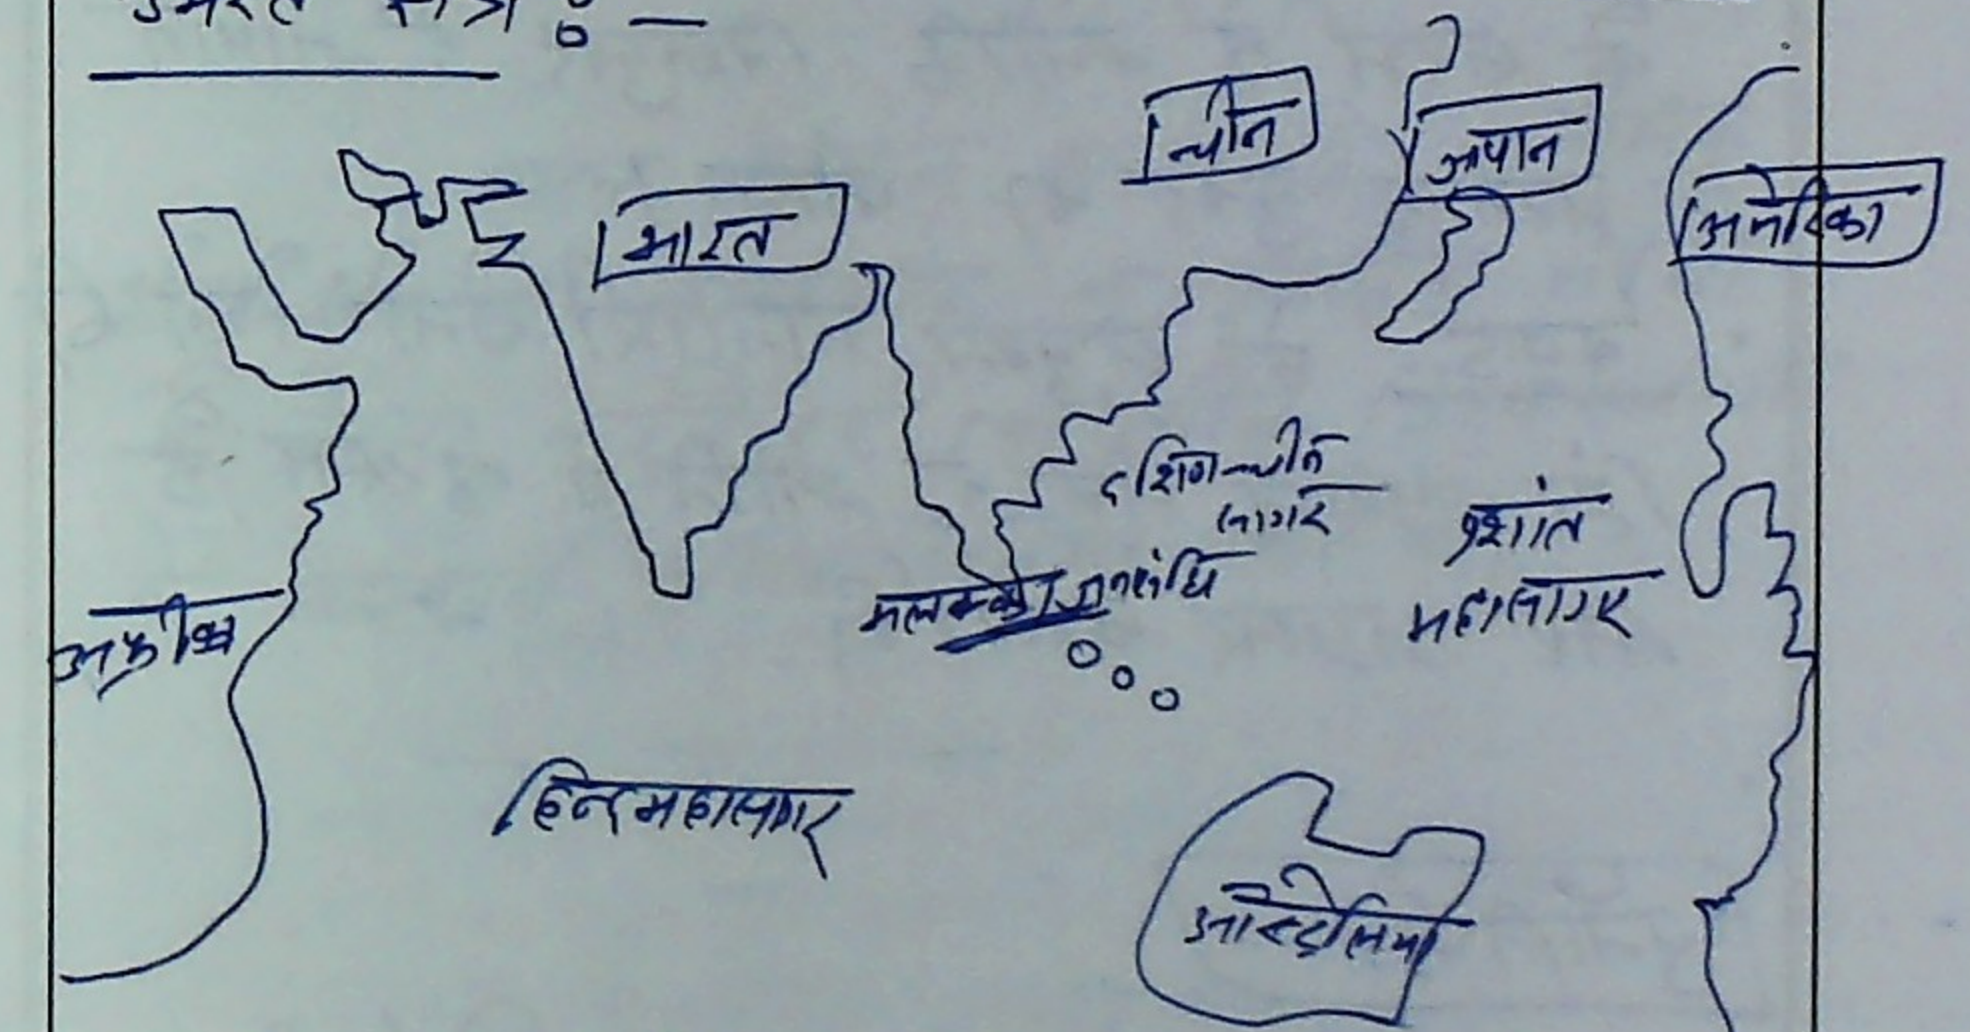 चीन
जापान
भारत
अमेरिका
दक्षिण चीन
सागर
प्रशांत
महासागर
मलक्का जलसंधि
अफ्रीका
हिन्दमहासागर
ऑस्ट्रेलिया